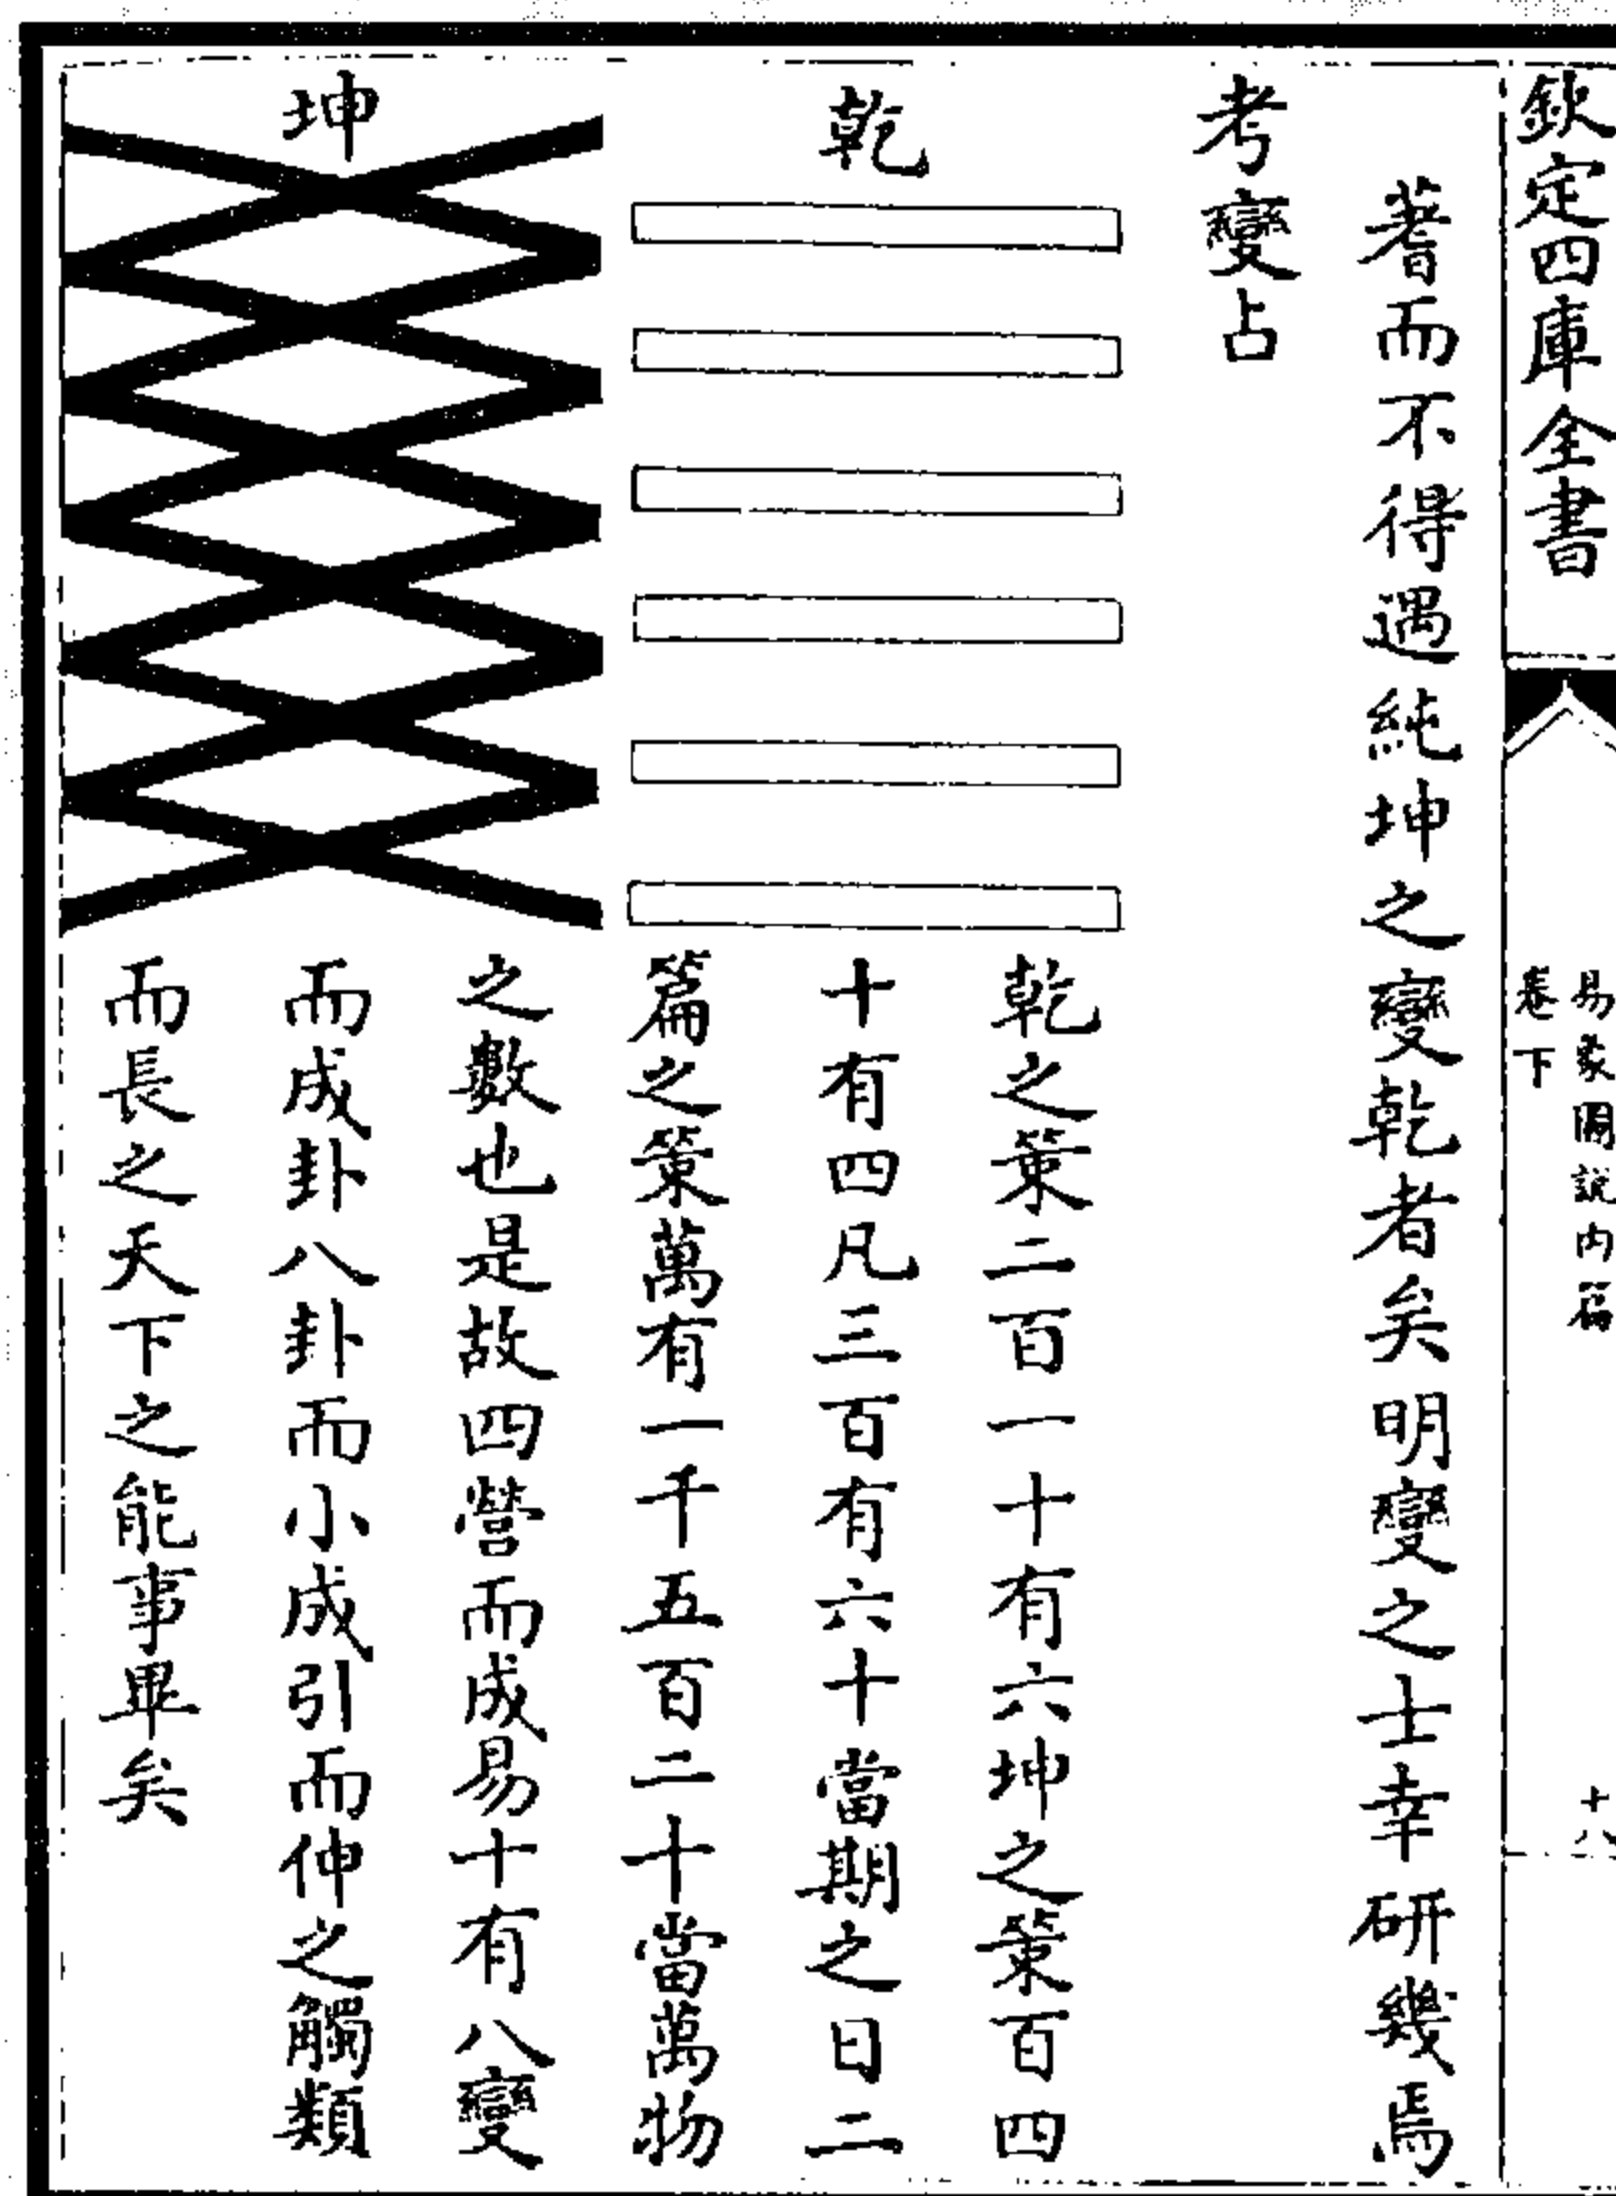 欽定四庫全書
易象圖説内篇
卷下
十八
蓍而不得遇純坤之變乾者矣明變之士幸研幾焉
考變占
乾
坤
乾之策二百一十有六坤之策百四
十有四凡三百有六十當期之日二
篇之策萬有一千五百二十當萬物
之數也是故四營而成易十有八變
而成卦八卦而小成引而伸之觸類
而長之天下之能事畢矣